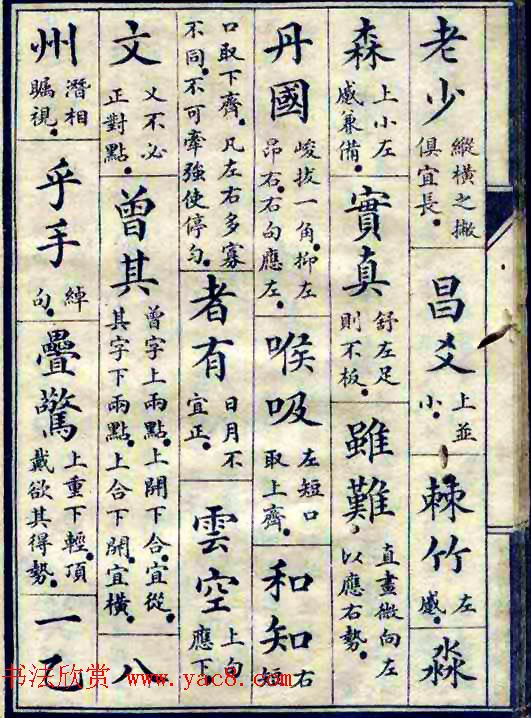 老少
縱橫之撇
俱宜長。
昌爻
上並
小。
棘竹
左
慼。
淼
森
上小左
慼兼備。
實真
舒左足
則不板。
雖難
直畫微向左
以應右勢。
丹國
峻拔一角。抑左
昂右。右向應左。
喉吸
左短口
取上齊。
和知
右
短
口取下齊。凡左右多寡
不同。不可牽強使停勻。
者有
日月不
宜正。
雲空
上向
應下。
文
乂不必
正對點。
曾其
曾字上兩點。上開下合。宜從。
其字下兩點。上合下開。宜橫。
八
州
潛相
矚視。
乎手
綽
勾。
疊驚
上重下輕。頂
戴欲其得勢。
一乙
书法欣赏 www.yac8.com